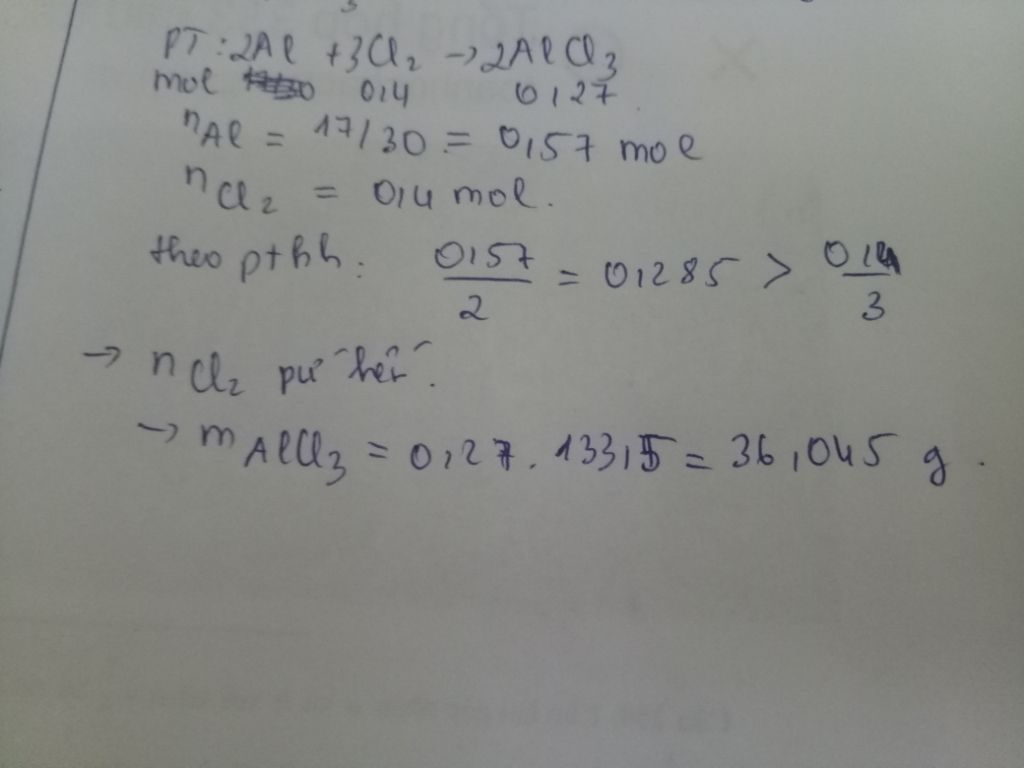 PT: 2Al + 3Cl₂ → 2AlCl₃
mol 0,4 0,27
nAl = 17/30 = 0,57 mol
nCl₂ = 0,4 mol.
theo pthh: 0,57/2 = 0,285 > 0,4/3
→ nCl₂ pư hết.
→ mAlCl₃ = 0,27. 133,5 = 36,045 g.